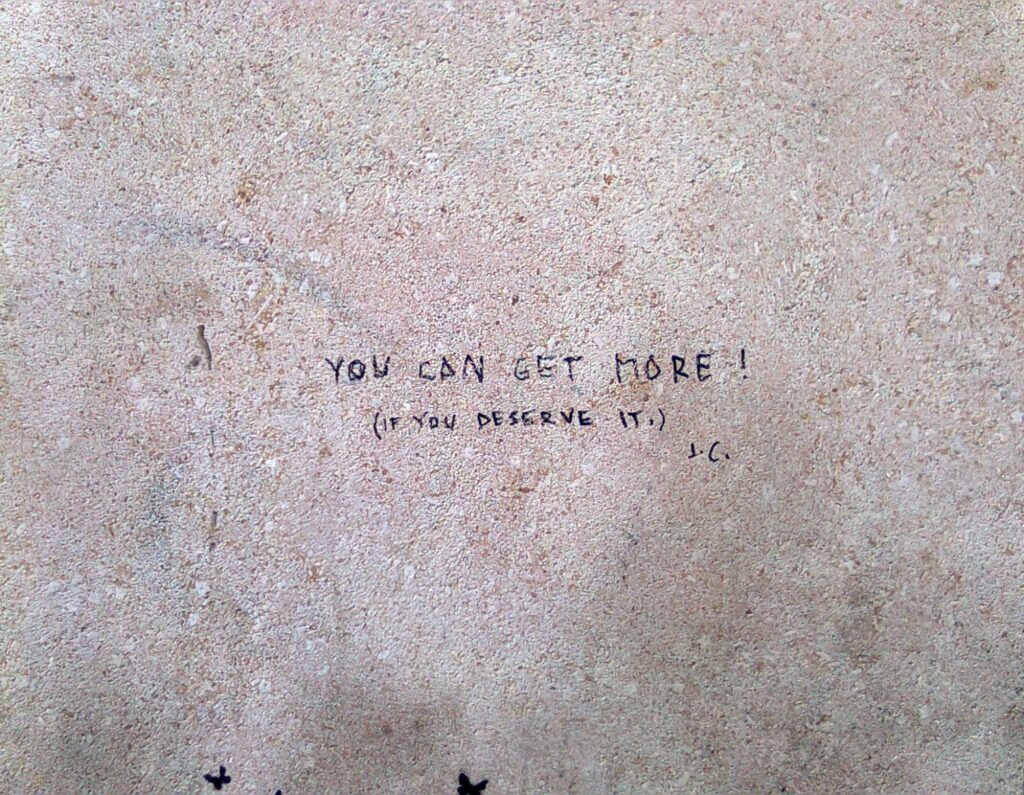 YOU CAN GET MORE !
(IF YOU DESERVE IT.)
J.C.